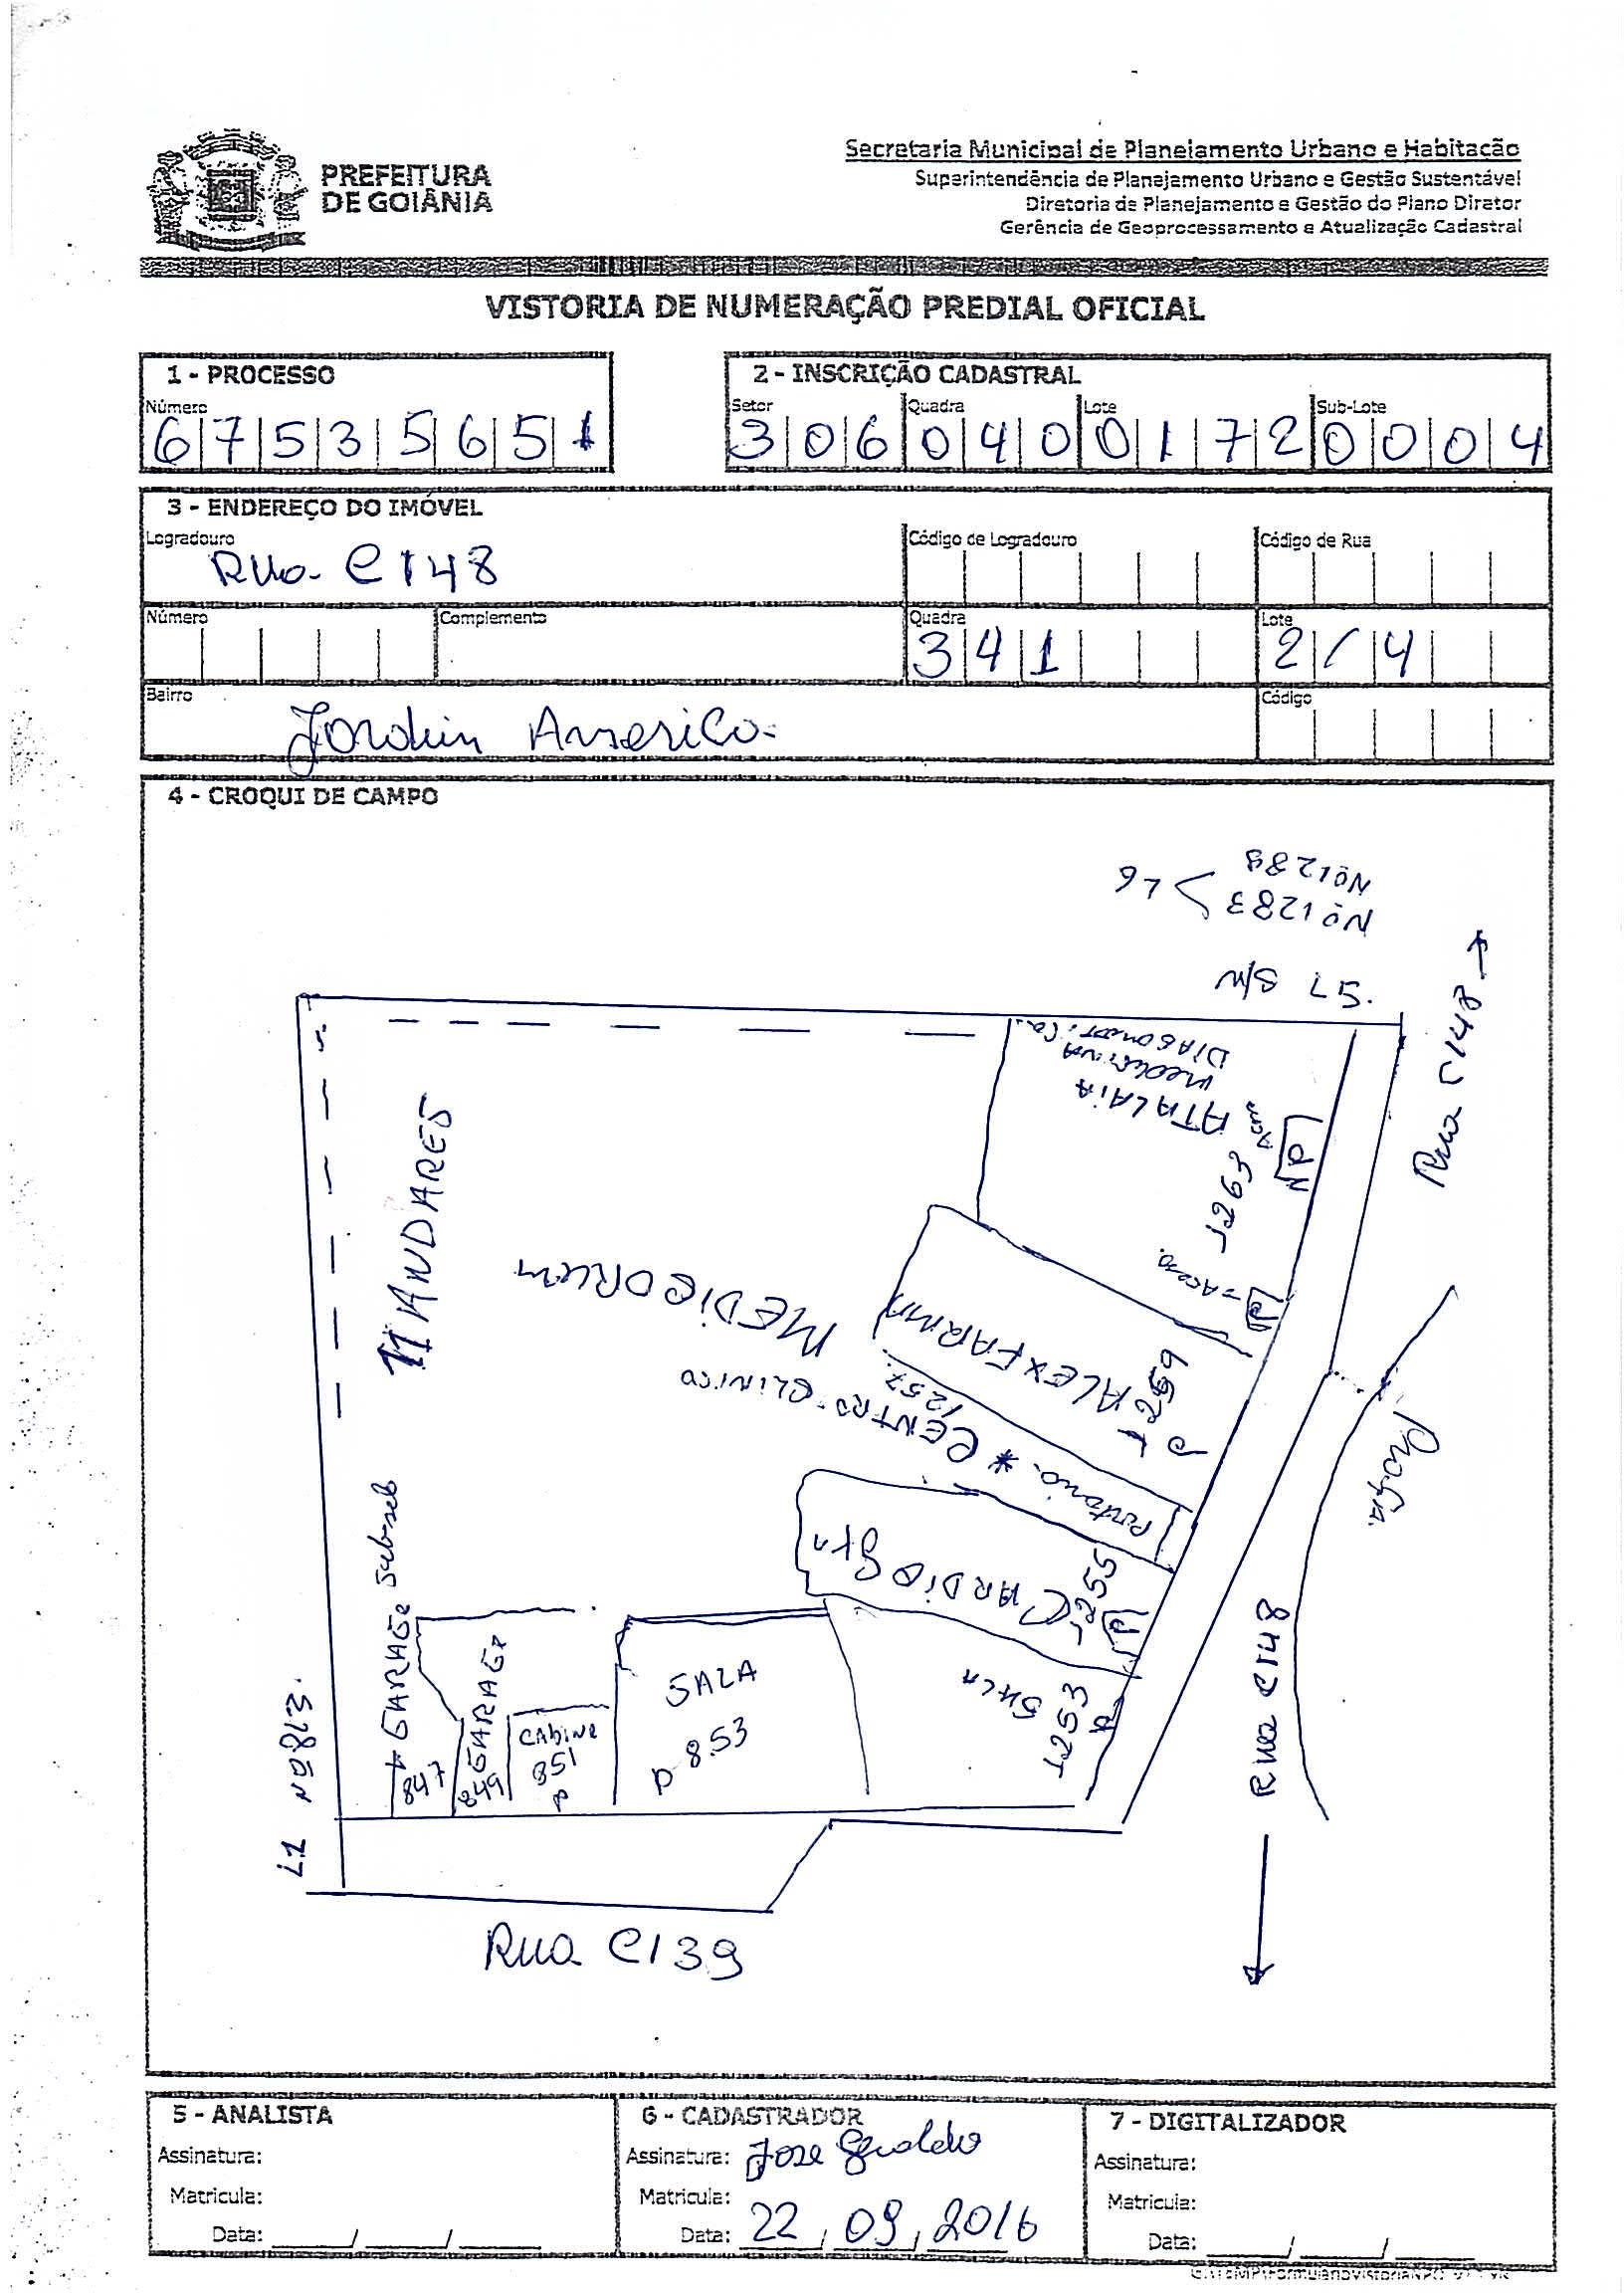 PREFEITURA
DE GOIÂNIA
Secretaria Municipal de Planejamento Urbano e Habitação
Superintendência de Planejamento Urbano e Gestão Sustentável
Diretoria de Planejamento e Gestão do Plano Diretor
Gerência de Geoprocessamento e Atualização Cadastral
VISTORIA DE NUMERAÇÃO PREDIAL OFICIAL
1 - PROCESSO
Número
6 7 5 3 5 6 5 1
2 - INSCRIÇÃO CADASTRAL
Setor Quadra Lote Sub-Lote
3 0 6 0 4 0 0 1 7 2 0 0 0 4
3 - ENDEREÇO DO IMÓVEL
Logradouro Código de Logradouro Código de Rua
Rua C148
Número Complemento Quadra Lote
3 4 1 2 / 4
Bairro Código
Jardim America
4 - CROQUI DE CAMPO
Nº 1289
Nº 1283 > L6
L5 S/N
Rua C148 →
DIAGNOSTICA
MEDICINA
ATALAIA
1263
P
Acesso
P
11 ANDARES
MEDICORUM
CENTRO CLINICO
1257
Portaria *
ALEXFARMA
P 1259
CARDIOGYN
1255
P
SALA
1253
P
Praça
Rua C148
* GARAGE Subsolo
847
GARAGE
849
CABINE
851
P
SALA
P 853
L1 Nº 813
Rua C139
5 - ANALISTA
Assinatura:
Matricula:
Data: / /
6 - CADASTRADOR
Assinatura: Jose Geraldo
Matricula:
Data: 22 / 09 / 2016
7 - DIGITALIZADOR
Assinatura:
Matricula:
Data: / /